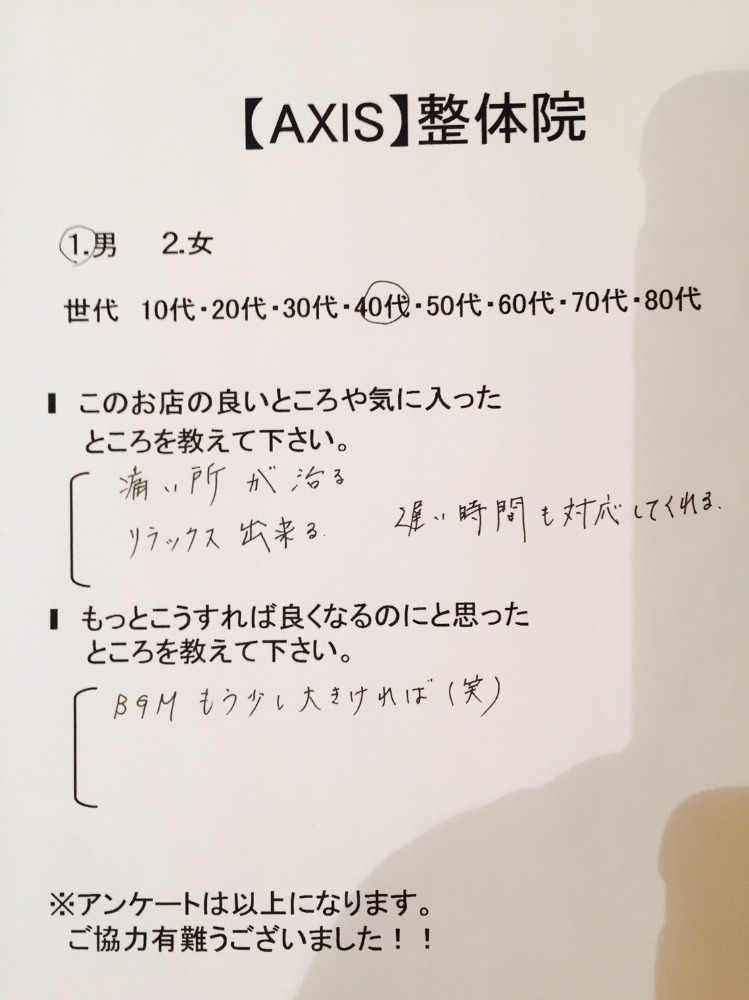 【AXIS】整体院
1.男 2.女
世代 10代・20代・30代・40代・50代・60代・70代・80代
このお店の良いところや気に入った
ところを教えて下さい。
痛い所が治る
リラックス出来る. 遅い時間も対応してくれる.
もっとこうすれば良くなるのにと思った
ところを教えて下さい。
BGMもう少し大きければ(笑)
※アンケートは以上になります。
ご協力有難うございました！！